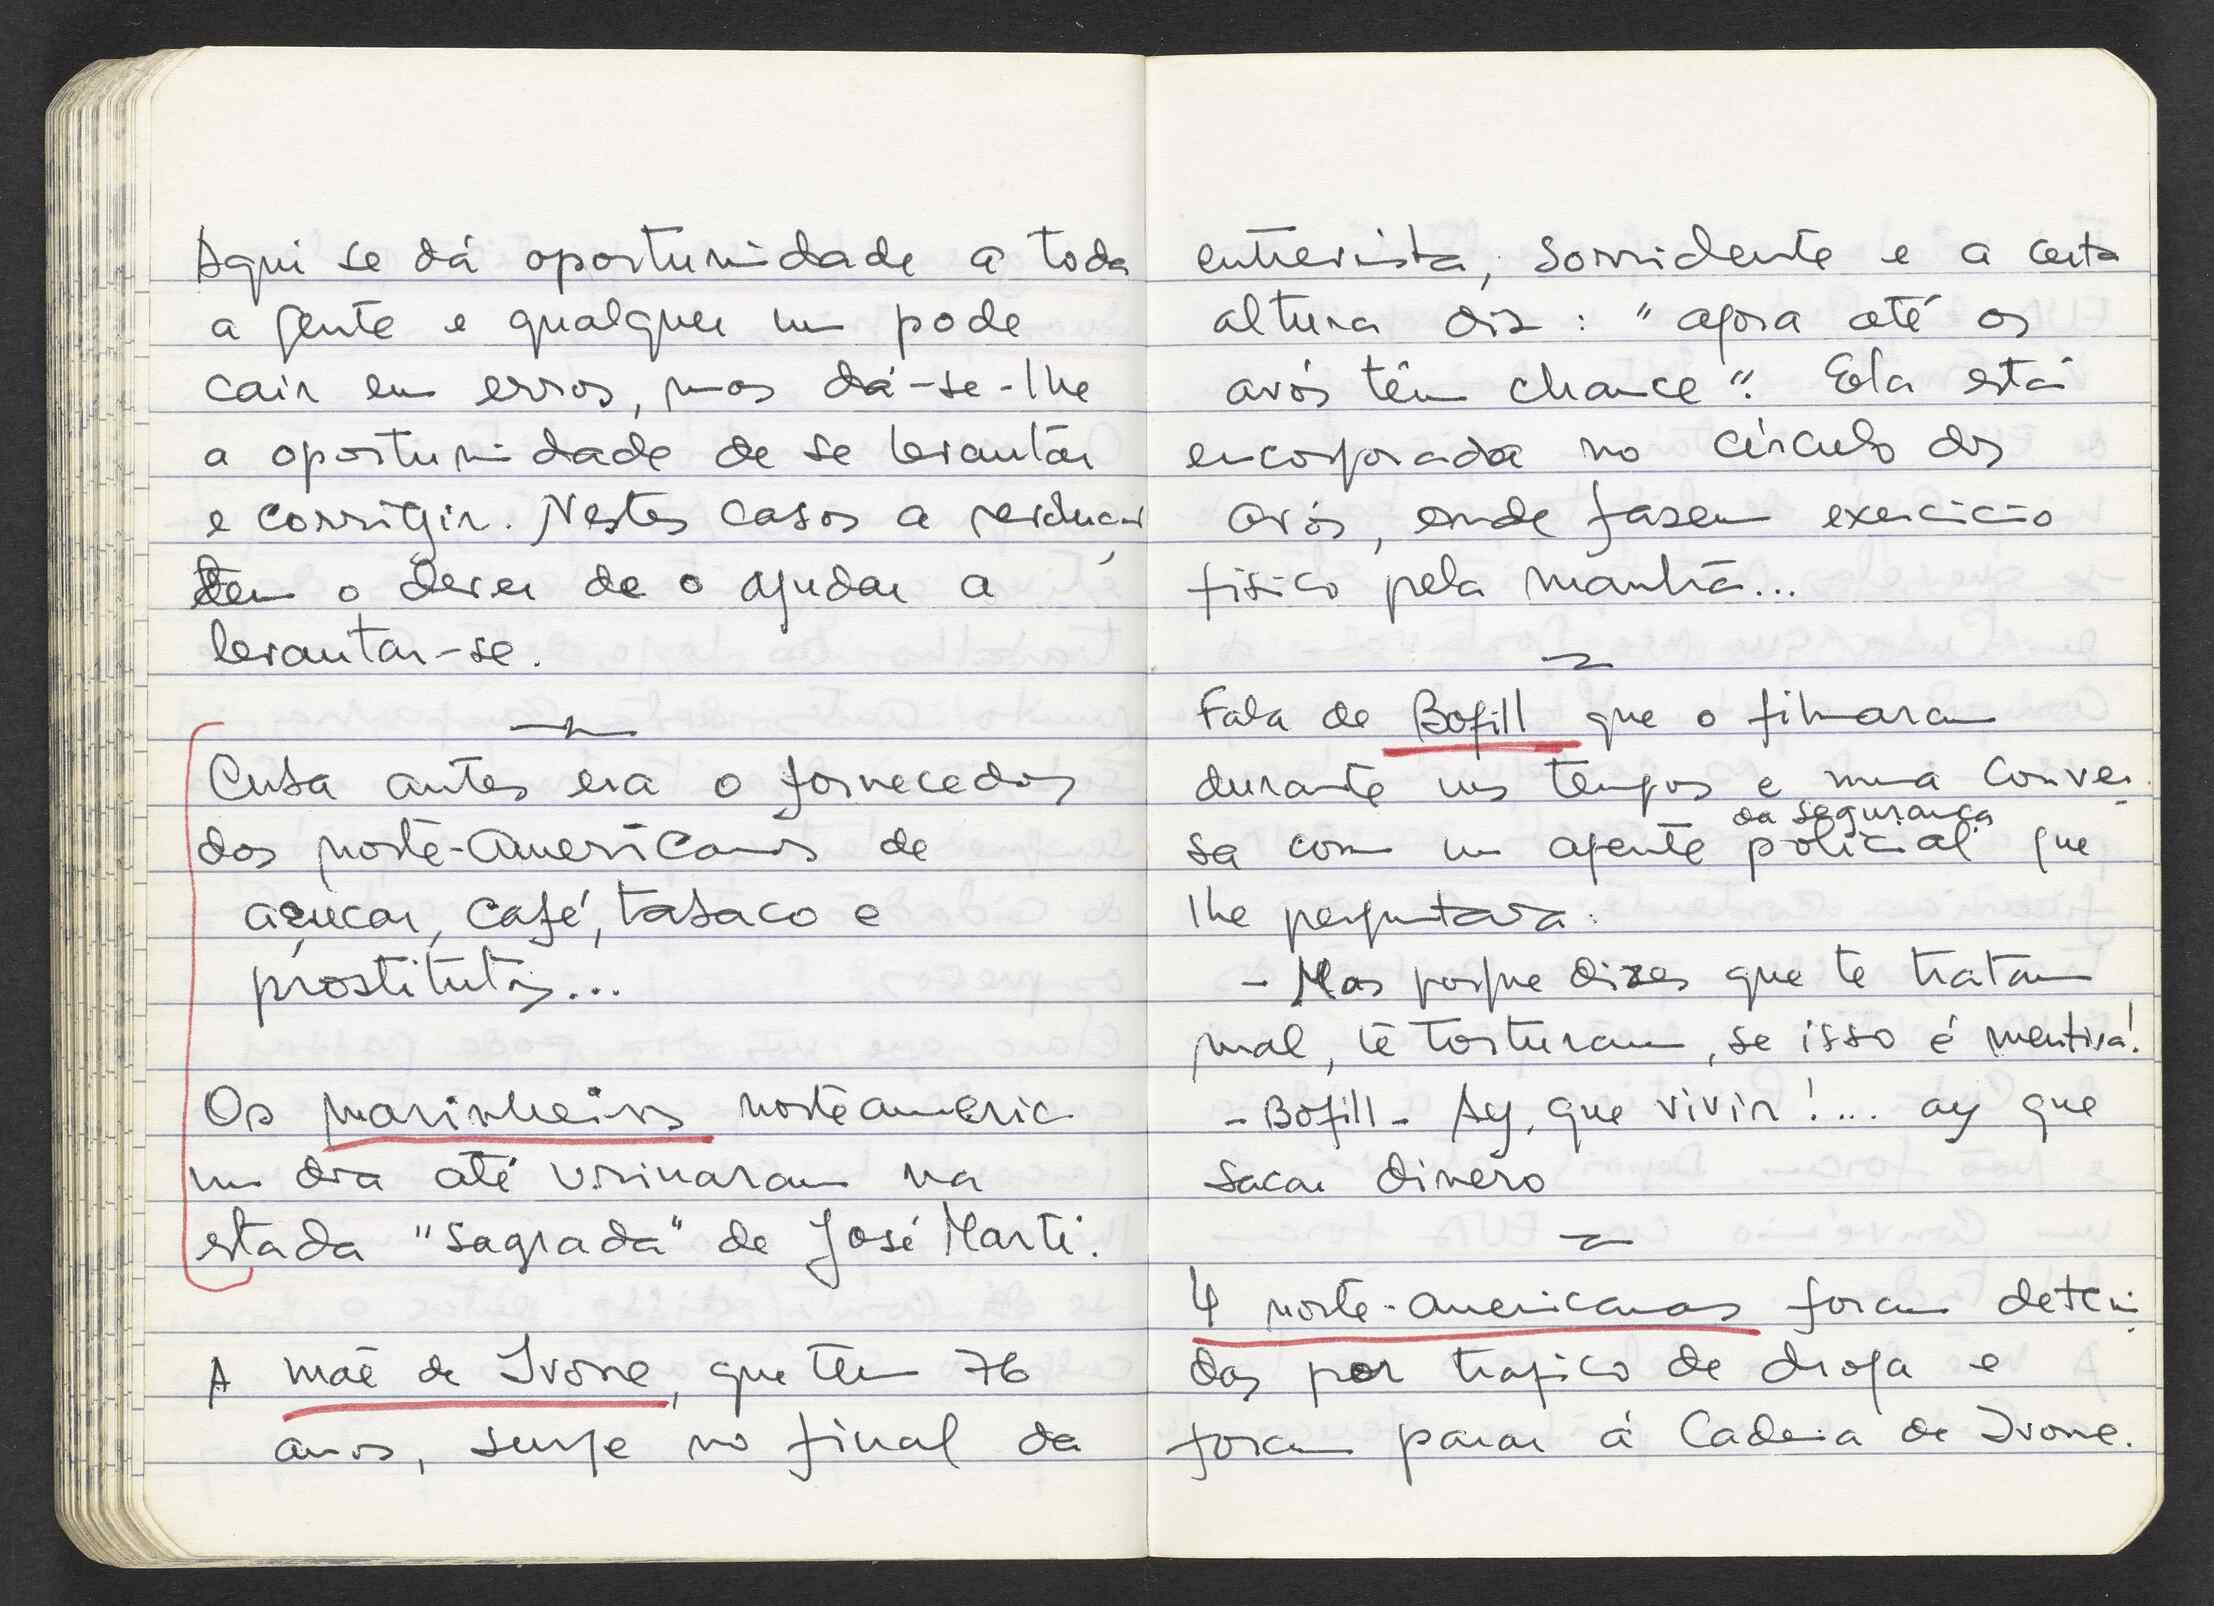 Aqui se dá oportunidade a toda
a gente e qualquer um pode
cair em erros, mas dá-se-lhe
a oportunidade de se levantar
e corrigir. Nestes casos a
tem o dever de o ajudar a
levantar-se.
Cuba antes era o fornecedor
dos norte-americanos de
açucar, café, tabaco e
prostitutas...
Os marinheiros norteameric
um dia até urinaram na
"sagrada" de José Marti.
A mãe de Ivone, que tem 76
anos, surge no final da
entrevista, sorridente e a certa
altura diz: "agora até os
avós têm chance". Ela está
encorporada no círculo dos
avós, onde fazem exercicio
fisico pela manhã...
Fala de Bofill que o filmaram
durante uns tempos e numa conver-
sa com um agente policial da segurança que
lhe perguntava:
- Mas porque dizes que te tratam
mal, te torturam, se isso é mentira!
- Bofill - Ay, que vivir!... ay que
sacar dinero
4 norte-americanas foram deteni-
das por trafico de droga e
foram parar á Cadeia de Ivone.